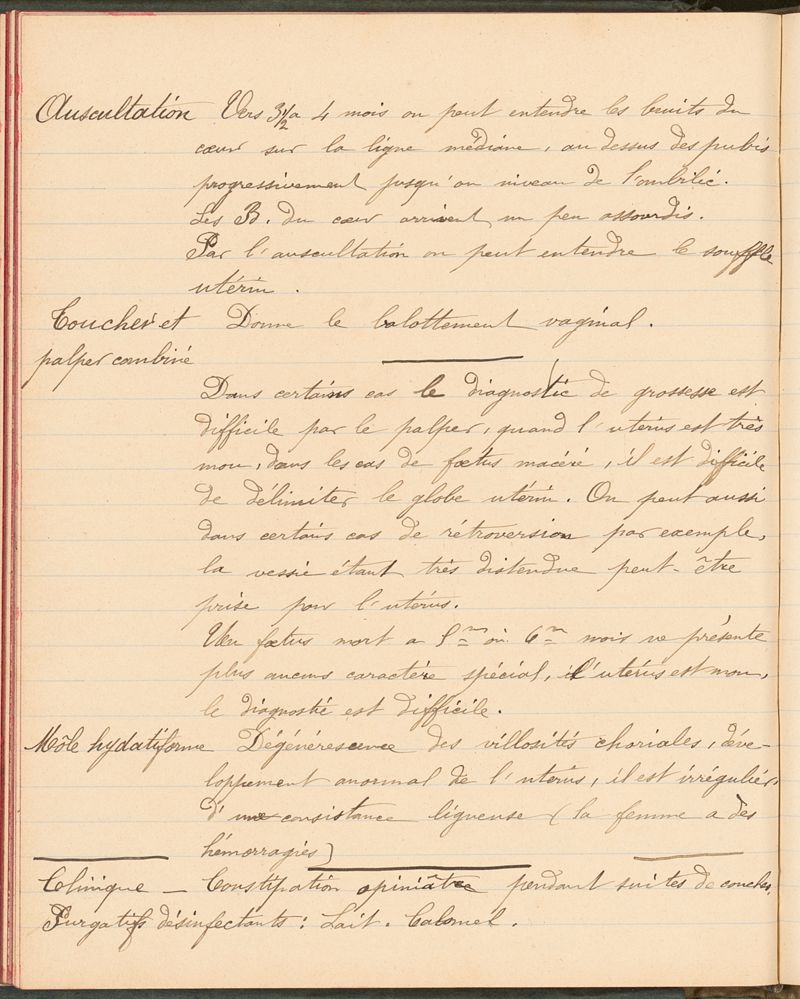 Auscultation Vers 3½ a 4 mois on peut entendre les bruits du
cœur sur la ligne médiane, au dessus des pubis
progressivement jusqu'au niveau de l'ombilic.
Les B. du cœur arrivent un peu assourdis.
Par l'auscultation on peut entendre le souffle
utérin.
Toucher et Donne le balottement vaginal.
palper combiné
Dans certains cas le diagnostic de grossesse est
difficile par le palper, quand l'uterus est très
mou, dans les cas de fœtus macéré, il est difficile
de délimiter le globe utérin. On peut aussi
dans certains cas de rétroversion par exemple,
la vessie étant très distendue peut-être
prise pour l'utérus.
Un fœtus mort a 5m où 6m mois ne présente
plus aucuns caractère spécial, l'uterus est mou,
le diagnostic est difficile.
Môle hydatiforme Dégénérescence des villosités choriales, déve-
loppement anormal de l'utérus, il est irrégulier,
d'une consistance ligneuse (la femme a des
hémorragies)
Clinique - Constipation opiniâtre pendant suites de couches.
Purgatifs désinfectants : Lait. Calomel.